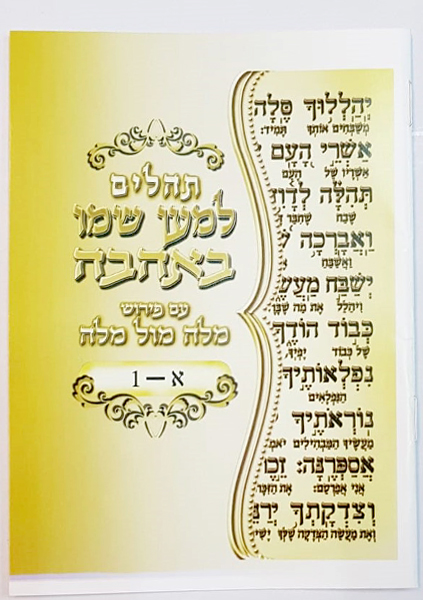 תהלים
למען שמו
באהבה
עם פירוש
מלה מול מלה
א – 1
יְהַלְלוּךָ סֶּלָה
משבחים אותך תמיד:
אַשְׁרֵי הָעָם
אשריו של העם
תְּהִלָּה לְדָוִ
שבח שחבר
וַאֲבָרְכָה
ואשבח
יְשַׁבַּח מַעֲשֶׂ
ויהלל את מה
כְּבוֹד הוֹדֶךָ
של כבוד יפיך
נִפְלְאוֹתֶיךָ
הנפלאים
נוֹרְאֹתֶיךָ
מעשיך המבהילים יאמ
אֲסַפְּרֶנָּה: זֵכֶ
אני אספרם: את הזכר
וְצִדְקָתְךָ יְרַנּ
ואת מעשה הצדקה שלך ישי